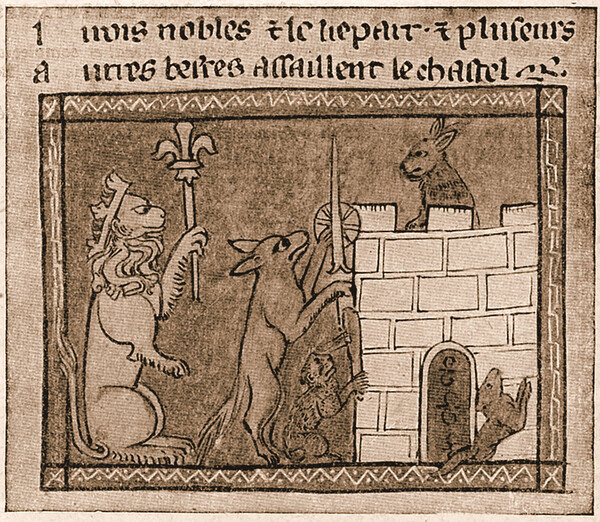 l i rois nobles ⁊ le liepart · ⁊ pluseurs
a utres bestes assaillent le chastel